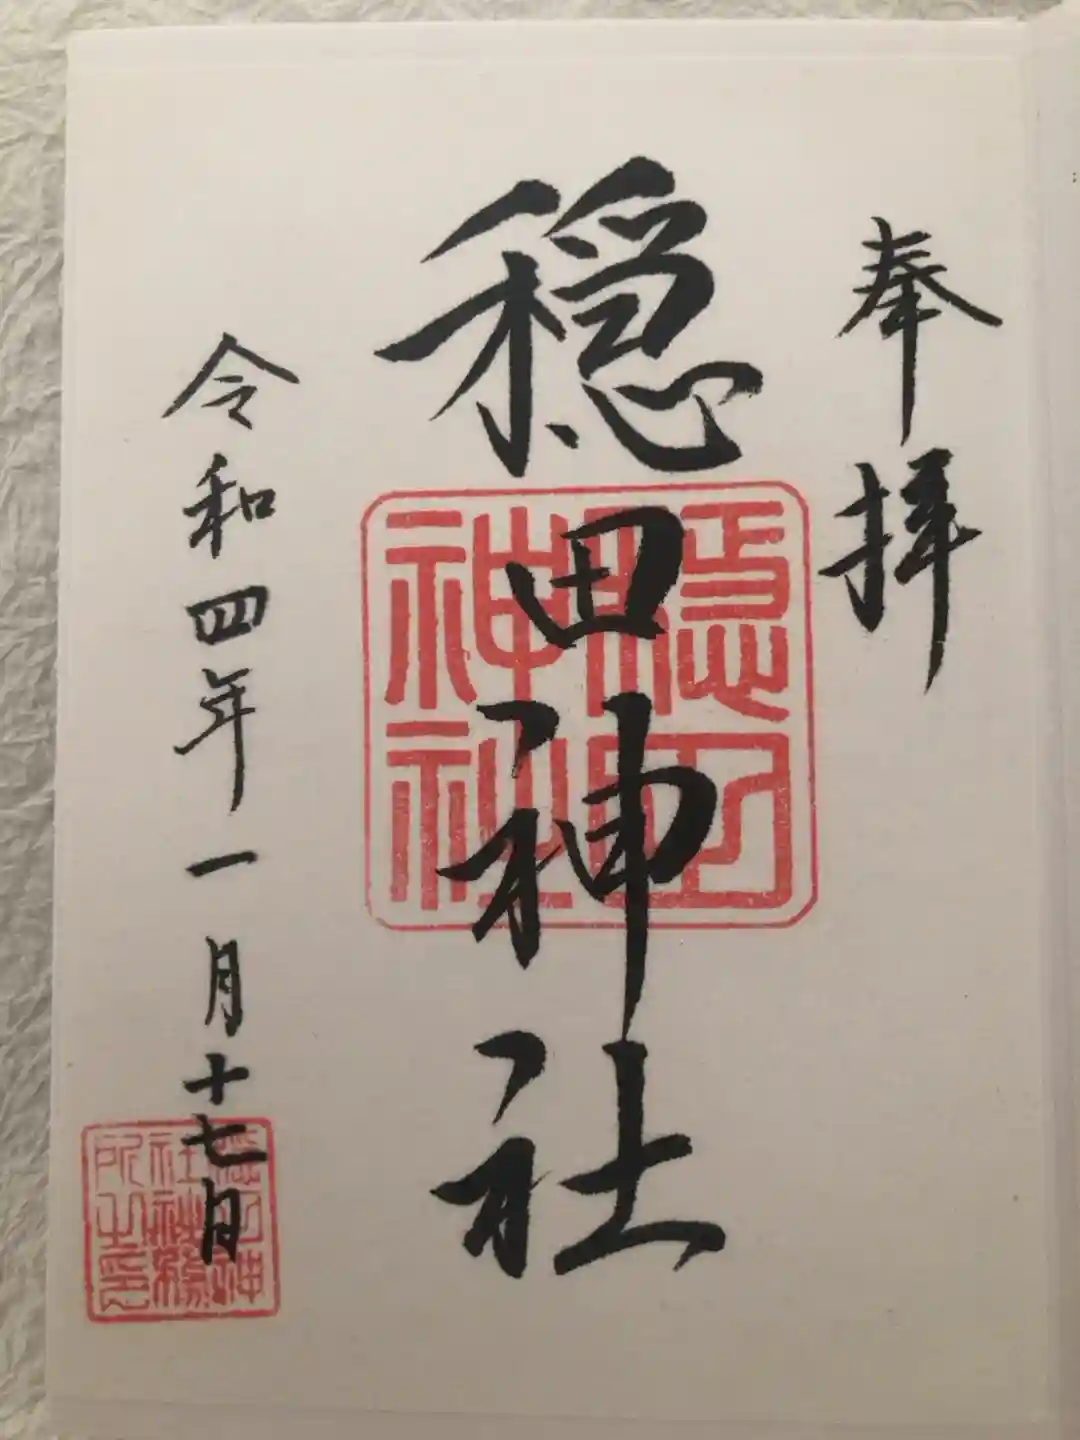 奉拝
穏田神社
穏田神社
令和四年一月十七日
穏田神社社務所之印